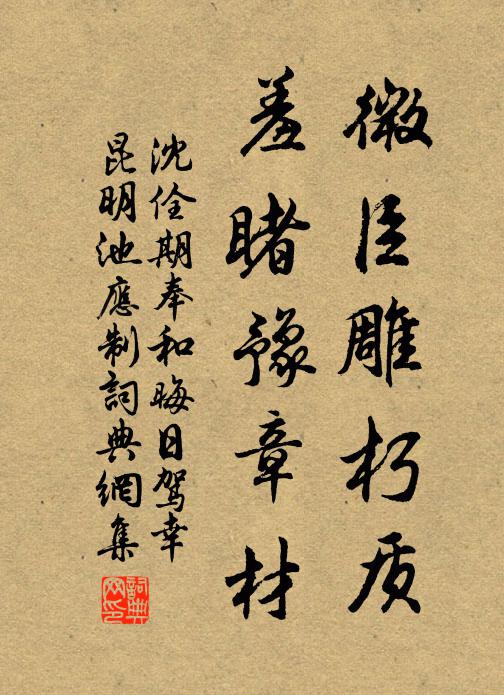 微臣雕朽质
羞睹豫章材
沈佺期奉和晦日驾幸
昆明池應制詞典網集
詞典
网印